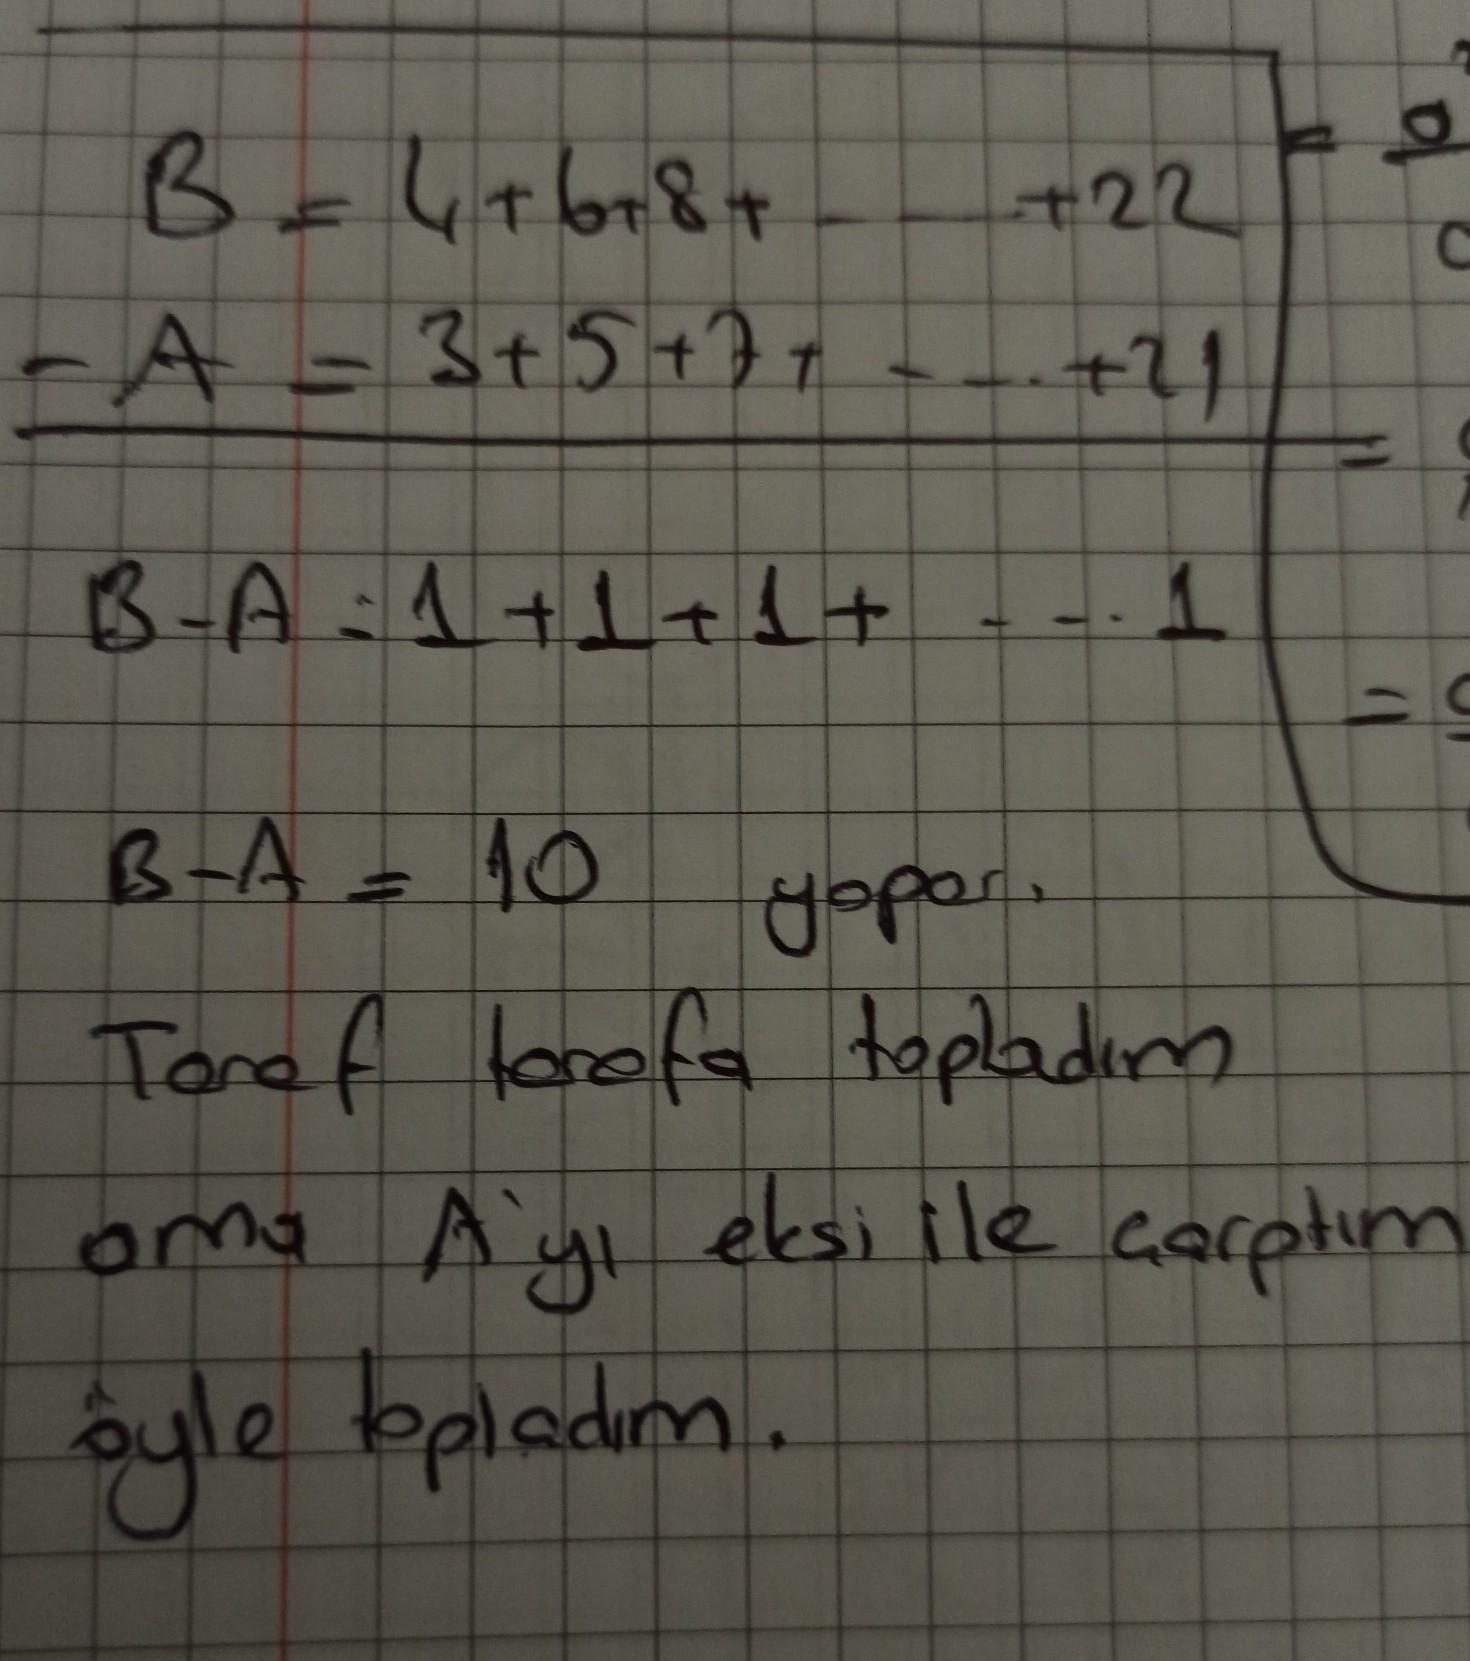 B = 4+6+8+ - - - +22
- A = 3+5+7+ - - .. +21
B-A = 1+1+1+ - - .. 1
B-A = 10 yapar.
Taraf tarafa topladım
ama A'yı eksi ile çarptım
öyle topladım.